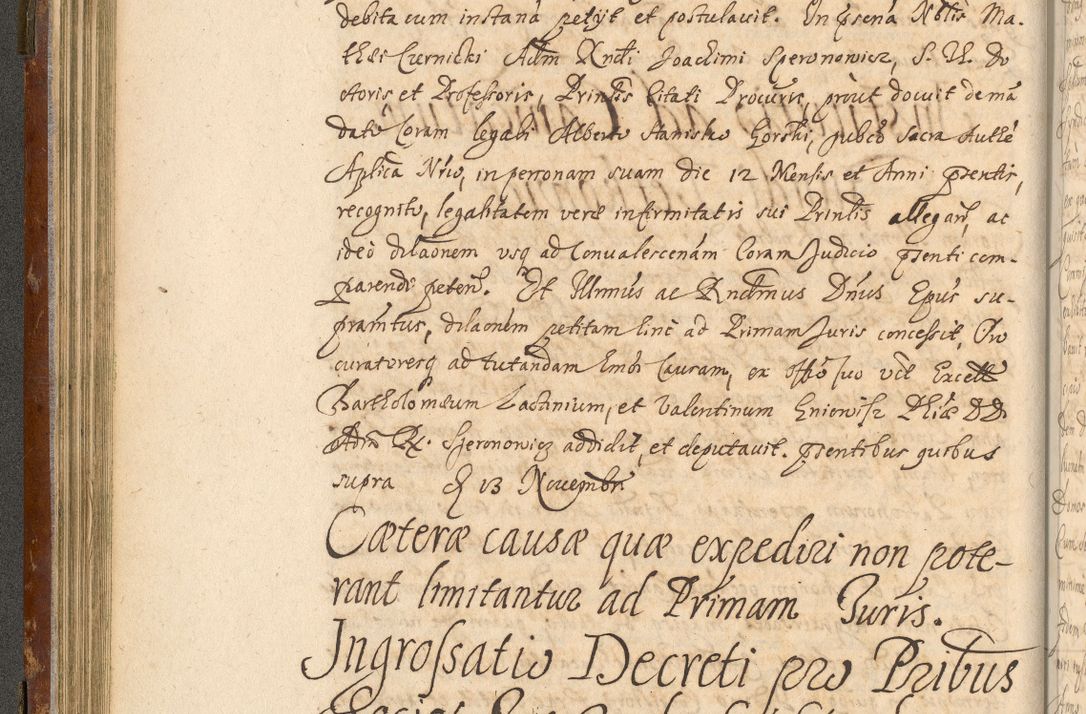 debita cum instanã petijt et postulavit. In pñsena Nblis Ma-
thæi Czernicki Adm Rndi Joachimi Speronowicz, S. Th. Do
ctoris et Professoris, Prinlis Citati Procuris, prout docuit de mã
dato Coram legali Alberto Stanisko Gorski, publco Sacra Autte
Aplica Nrio, in personam suam die 12 Mensis et Anni psentis,
recognito, legalitatem veræ infirmitatis sui Prinlis allegañ, ac
ideò dilaonem usq ad Convalescenãm Coram Judicio psenti com-
parendi peteñ. Et Illmus ac Rndmus Dnus Epus su-
pramtus, dilaonem petitam hinc ad Primam Juris concessit, Pro
curatoresq ad tutandam hmoi Causam, ex offo suo vdt Excell
Bartholomæum Lactinium, et Valentinum Gniewisz Phiæ DD.
Adm R. Speronowicz addidit, et deputavit. psentibus quibus
supra D 13 Novembr
Cæteræ causæ quæ expediri non pote-
rant limitantur ad Primam Juris.
Ingrossatio Decreti pro Pribus